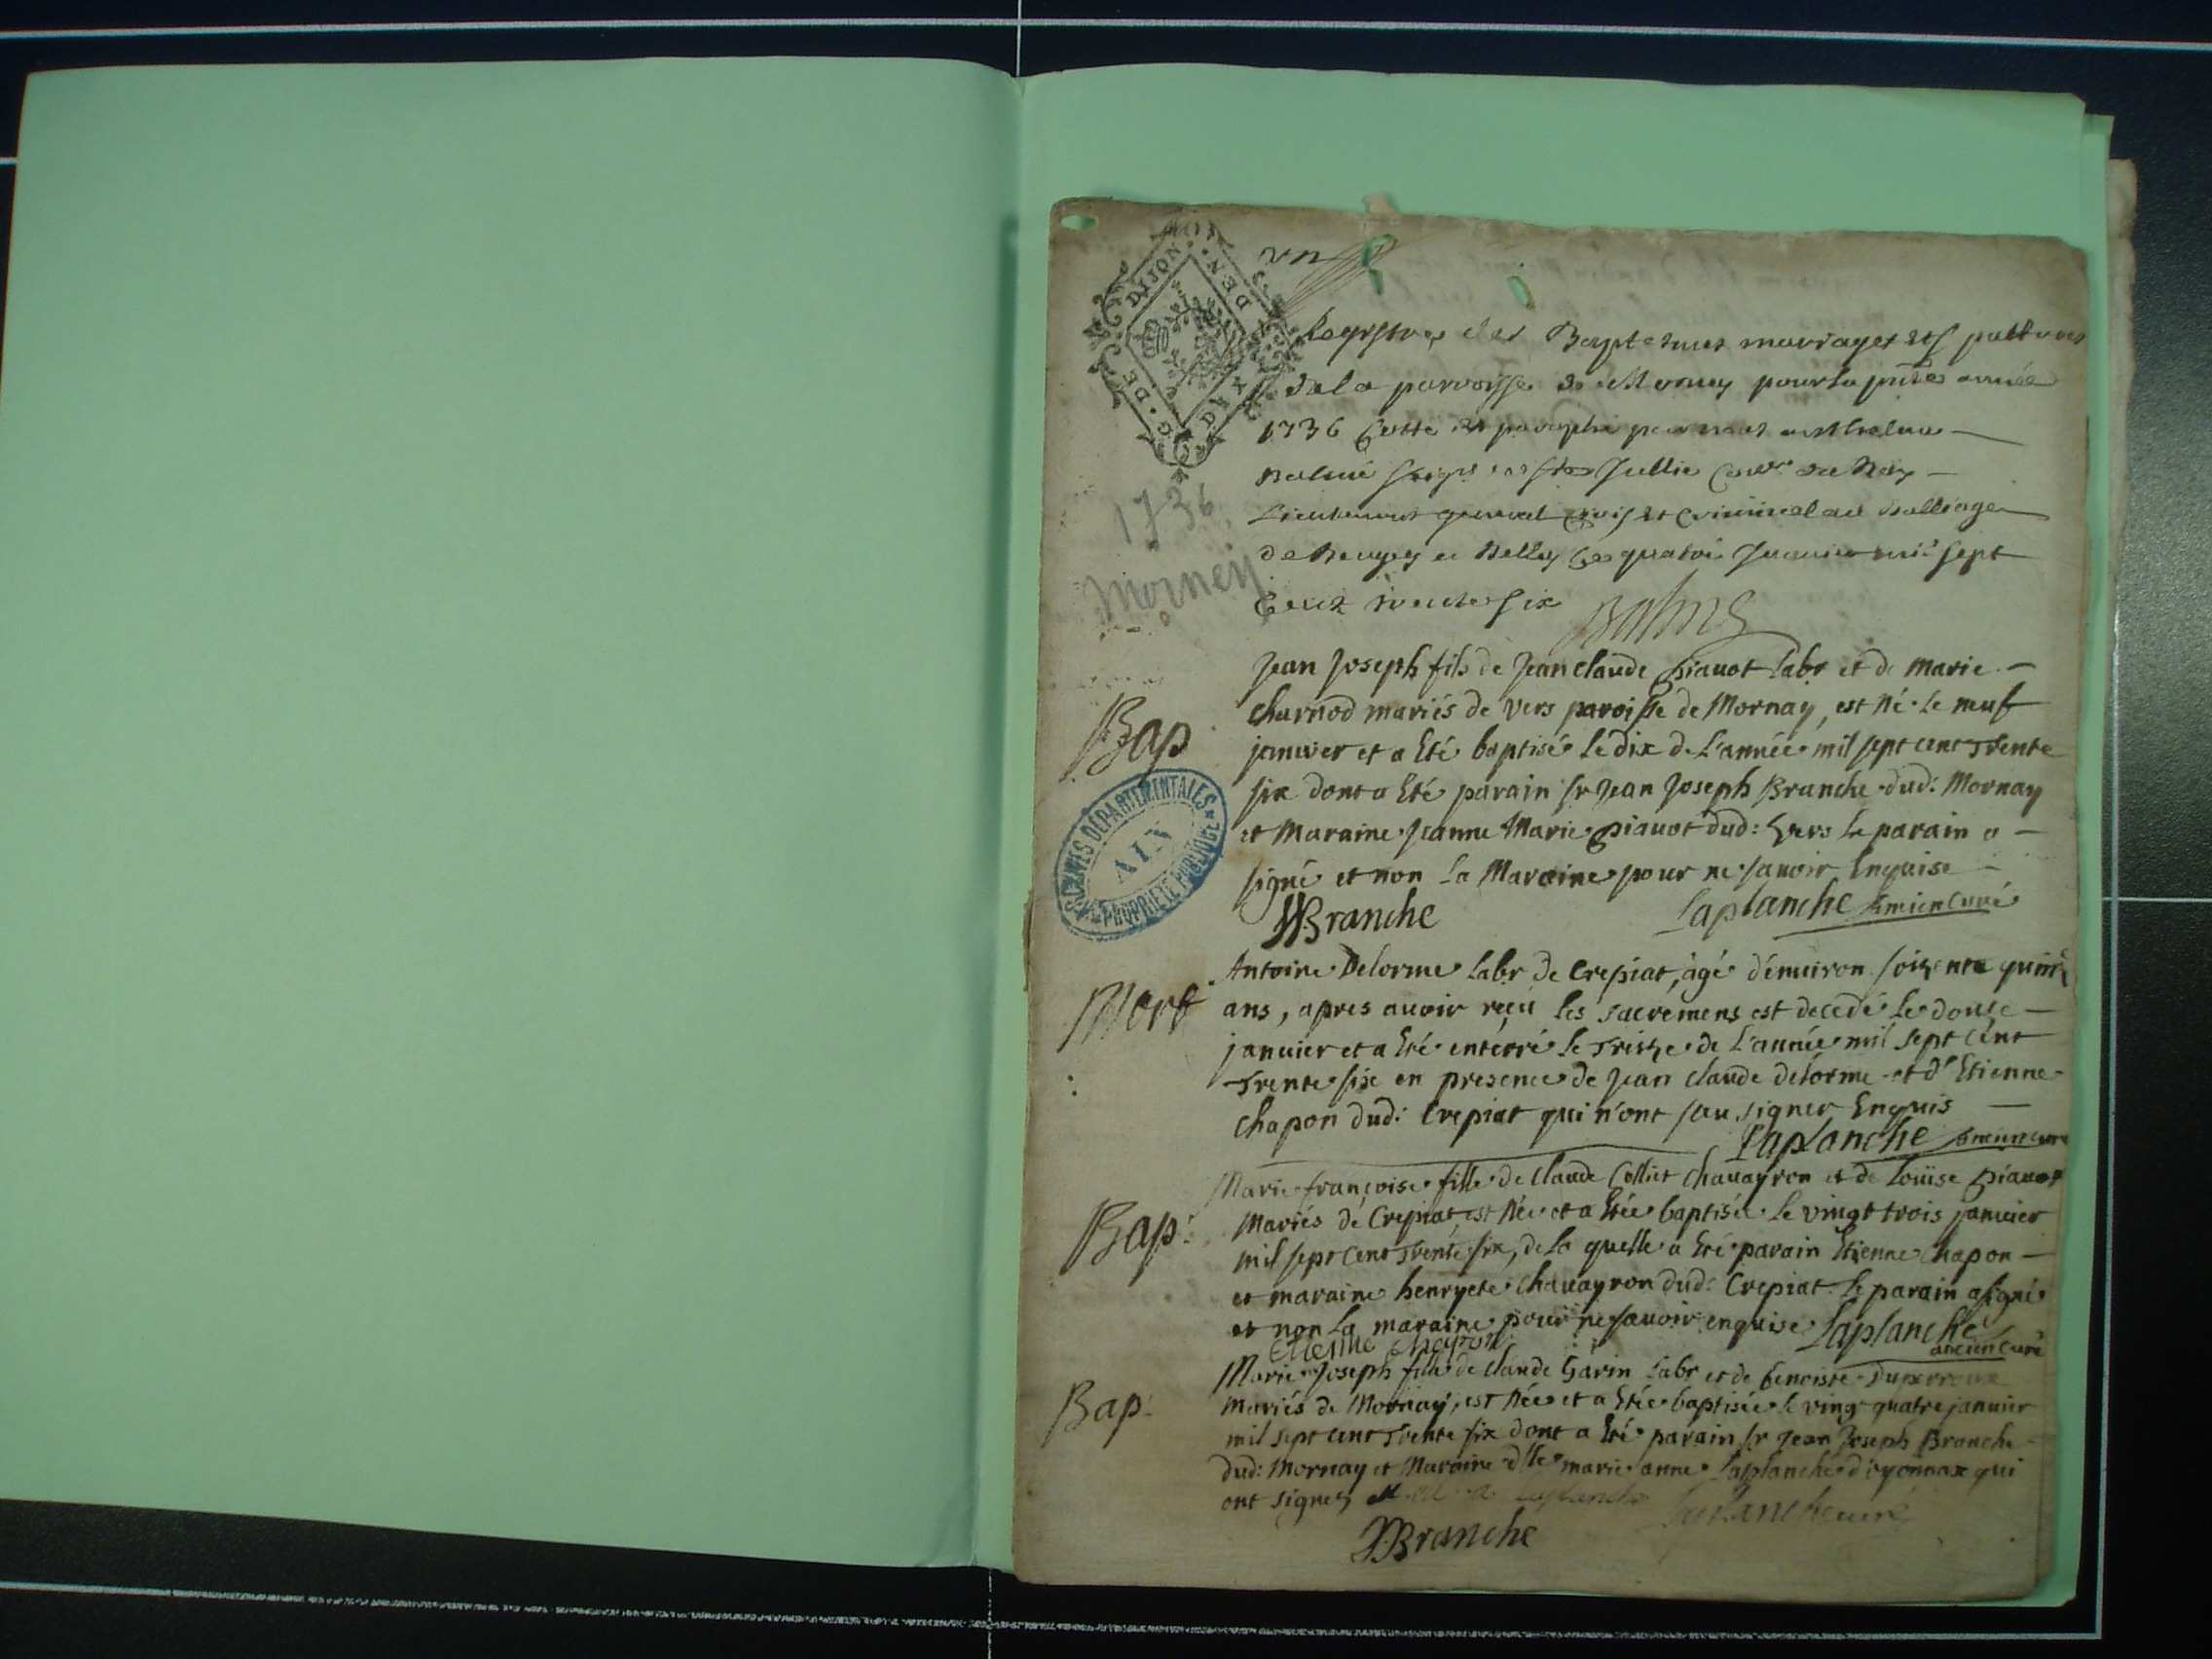 G. DE DIJON
DEN. DIX
vn
Registres des Baptesmes mariages et sepultures
de la parroisse de Mornay pour la pnte année
1736 Cotté et paraphé par nous
Balme
Lieutenant general Civil et Criminel au Balliage
de Beugey a Belley Ce quatre Janvier mil sept
Cent trente six Balme
1736
Mornay
Bap
Jean Joseph fils de Jean claude piauot labr et de marie
charnod mariés de vers paroisse de Mornay, est Né le neuf
januier et a Eté baptisé le dix de L'année mil sept cent Trente
six dont a Eté parain sr Jean Joseph Branche dud: Mornay
et Maraine Jeanne Marie piauot dud: Vers le parain a
signé et non La Maraine pour ne sauoir Enquise
JJBranche Laplanche Ancien Curé
ARCHIVES DÉPARTEMENTALES
AIN
PROPRIÉTÉ PUBLIQUE
Mort
Antoine Delorme labr de Crepiat, àgé d'enuiron soixente quinz
ans, apres auoir reçu les sacremens est decedé le douze
januier et a Eté enterré le Treize de L'année mil sept cent
Trente six en presence de Jean Claude delorme et d'Etienne
Chapon dud: Crepiat qui n'ont sceu signer Enquis
Laplanche Ancien Curé
Bap:
Marie françoise fille de Claude Collet Chauayron et de Loüise piauot
Mariés de Crepiat, est Née et a Etée baptisée le vingt trois januier
mil sept Cent Trente six, de la quelle a Eté parain Etienne Chapon
et maraine henryete Chauayron dud: Crepiat le parain a signé
et non la maraine pour ne sauoir enquise Laplanche
ancien Curé
Etienne Chapon
Bap:
Marie Joseph fille de Claude Garin labr et de benoiste Duperroux
mariés de Mornay, est Née et a Etée baptisée le ving quatre januier
mil sept cent Trente six dont a Eté parain sr Jean Joseph Branche
dud: Mornay et Maraine dlle marie anne Laplanche d'oyonnax qui
ont signez M a Laplanche Laplanche curé
JJBranche